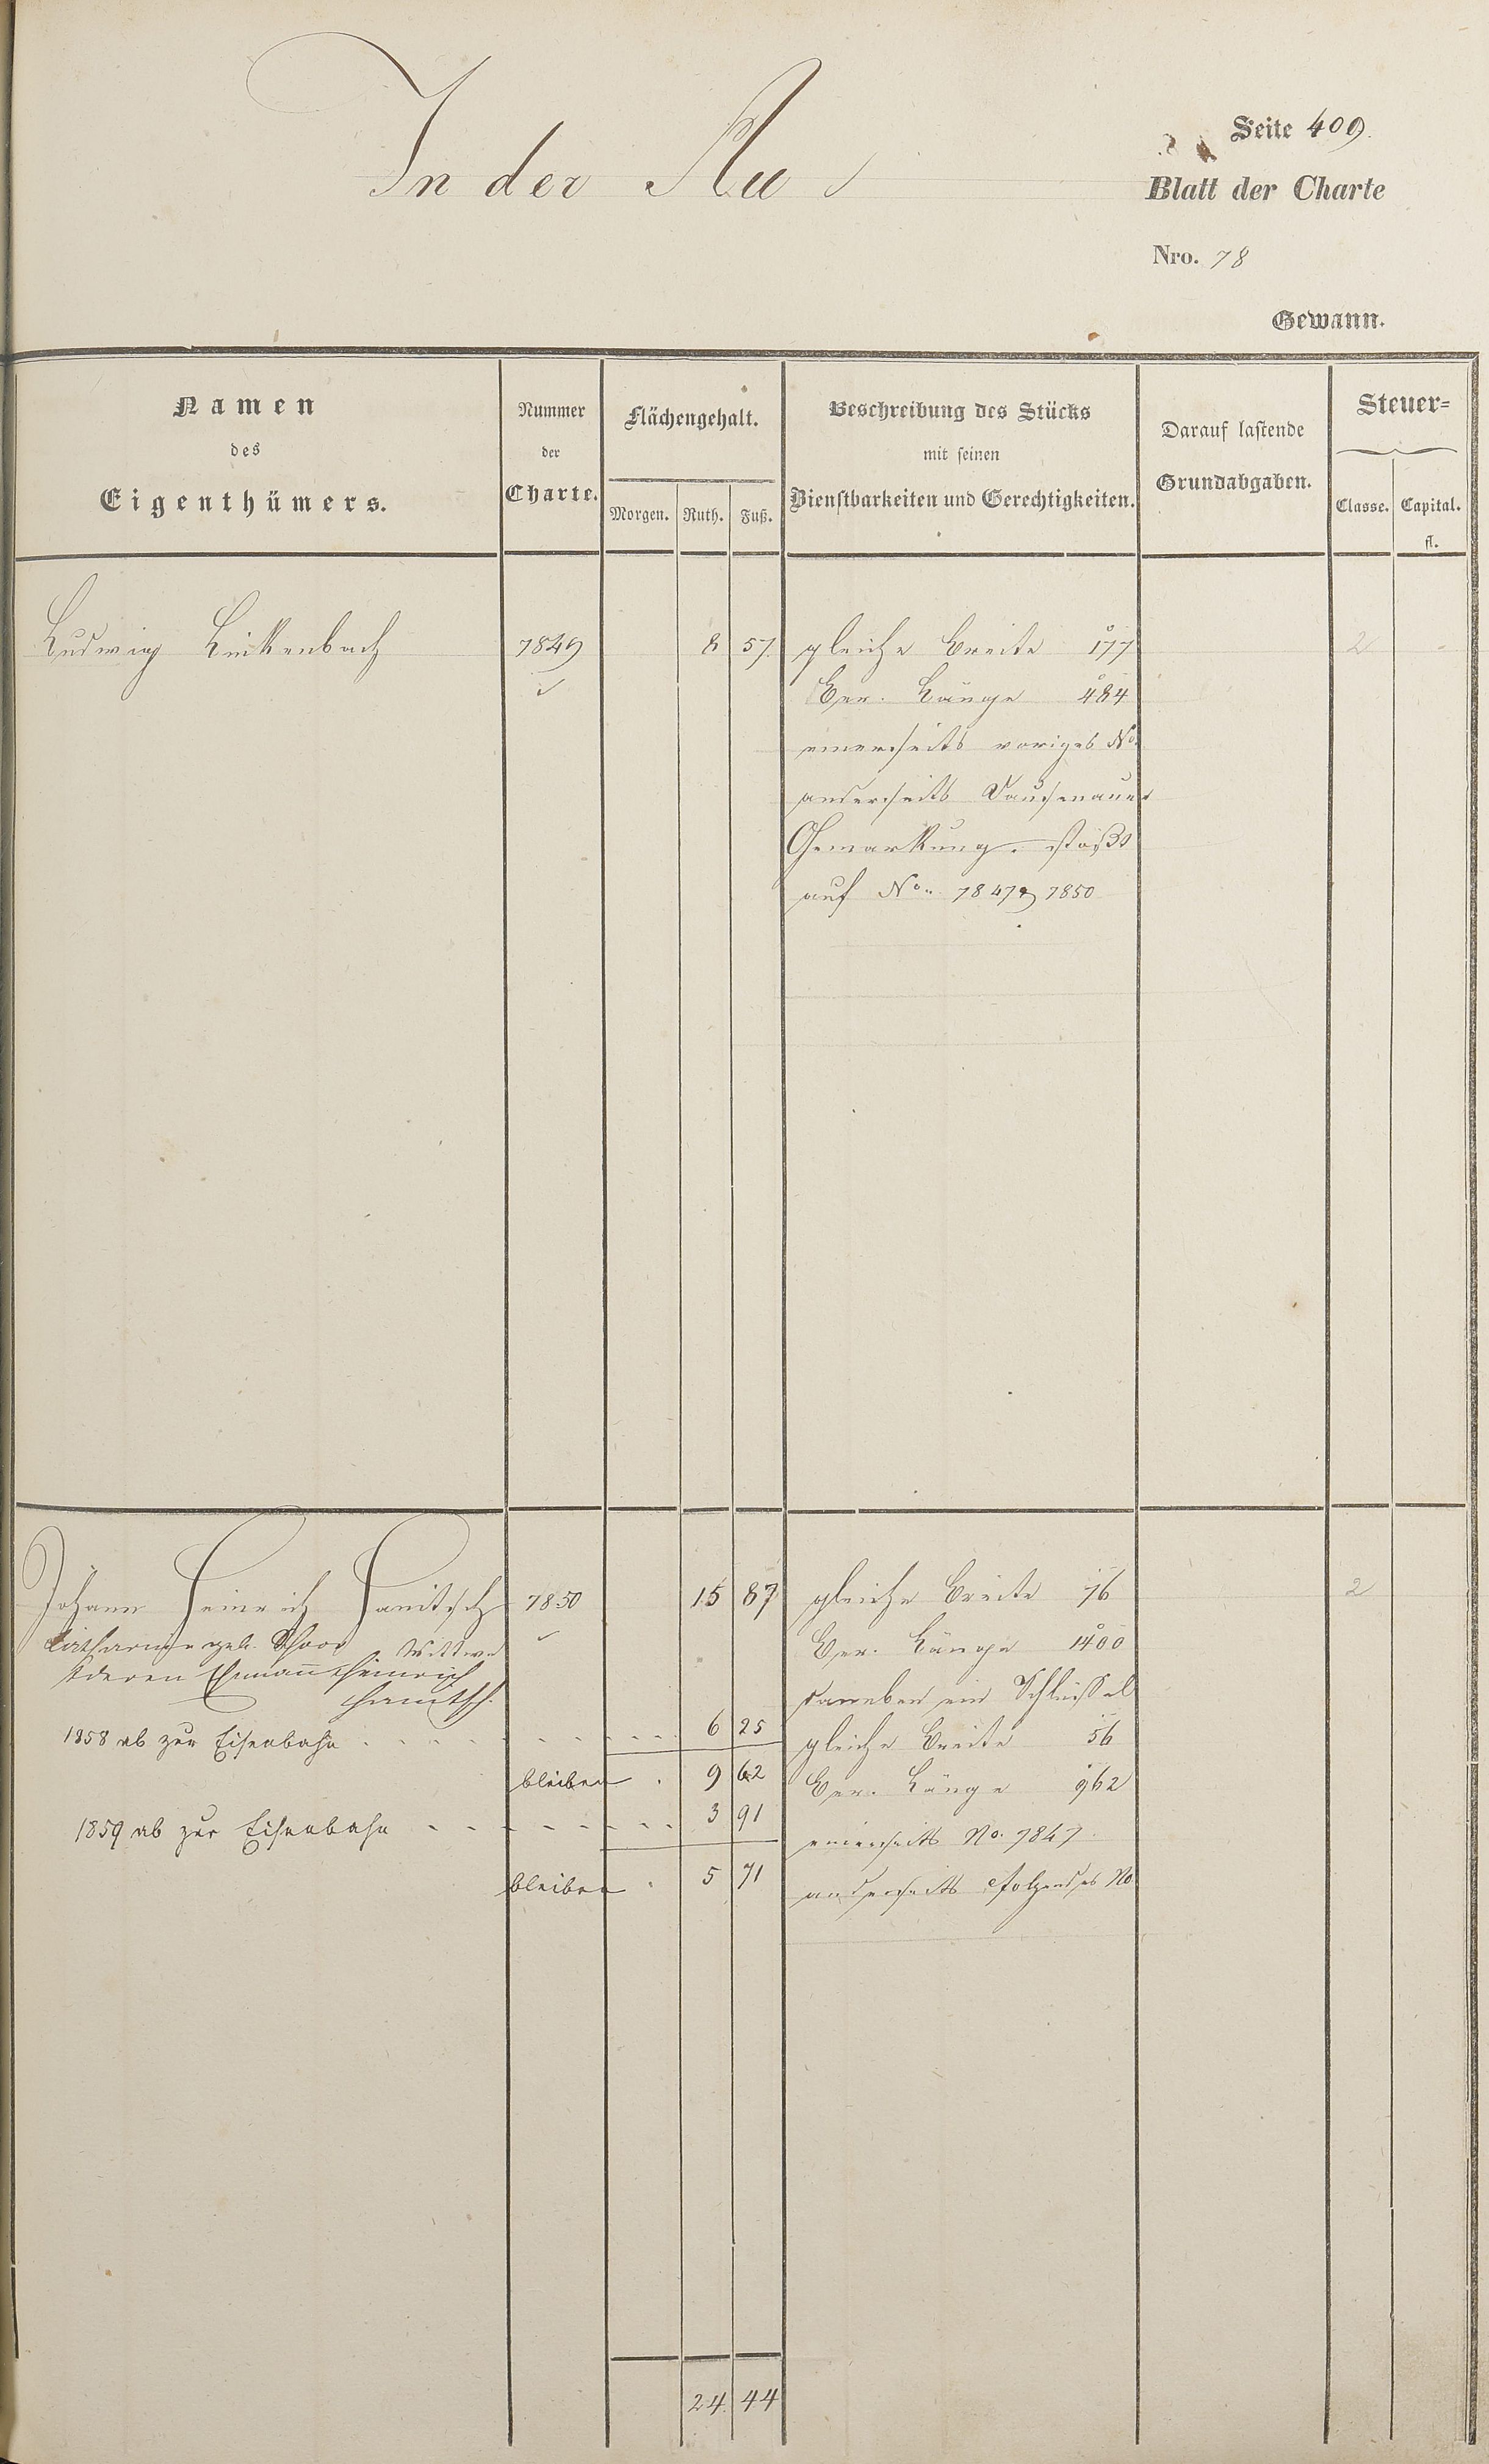 In der Au
Seite 409.
Blatt der Charte
Nro. 78
Gewann.
Namen
des
Eigenthümers.
Nummer
der
Charte.
Flächengehalt.
Morgen. Ruth. Fuß.
Beschreibung des Stücks
mit seinen
Dienstbarkeiten und Gerechtigkeiten.
Darauf lastende
Grundabgaben.
Steuer-
Classe. Capital.
fl.
Ludwig Lückenbach 7849 8 57 gleiche Breite 177 2
Ber. Länge 484
einerseits voriges No.
anderseits Dausenauer
Gemarkung. stößt
auf No. 7847 & 7850
Johann Heinrich Hanitsch 7850 15 87 gleiche Breite 76 2
Catharina geb. Wittwe
Ber. Länge 1400
deren Ehmann Heinrich
Hanitsch.
daneben ein Schlüssel
1858 ab zur Eisenbahn 6 25
gleiche Breite 56
bleiben 9 62
Ber. Länge 962
1859 ab zur Eisenbahn 3 91
einerseits No. 7847.
bleiben 5 71
anderseits folgendes No
24 44